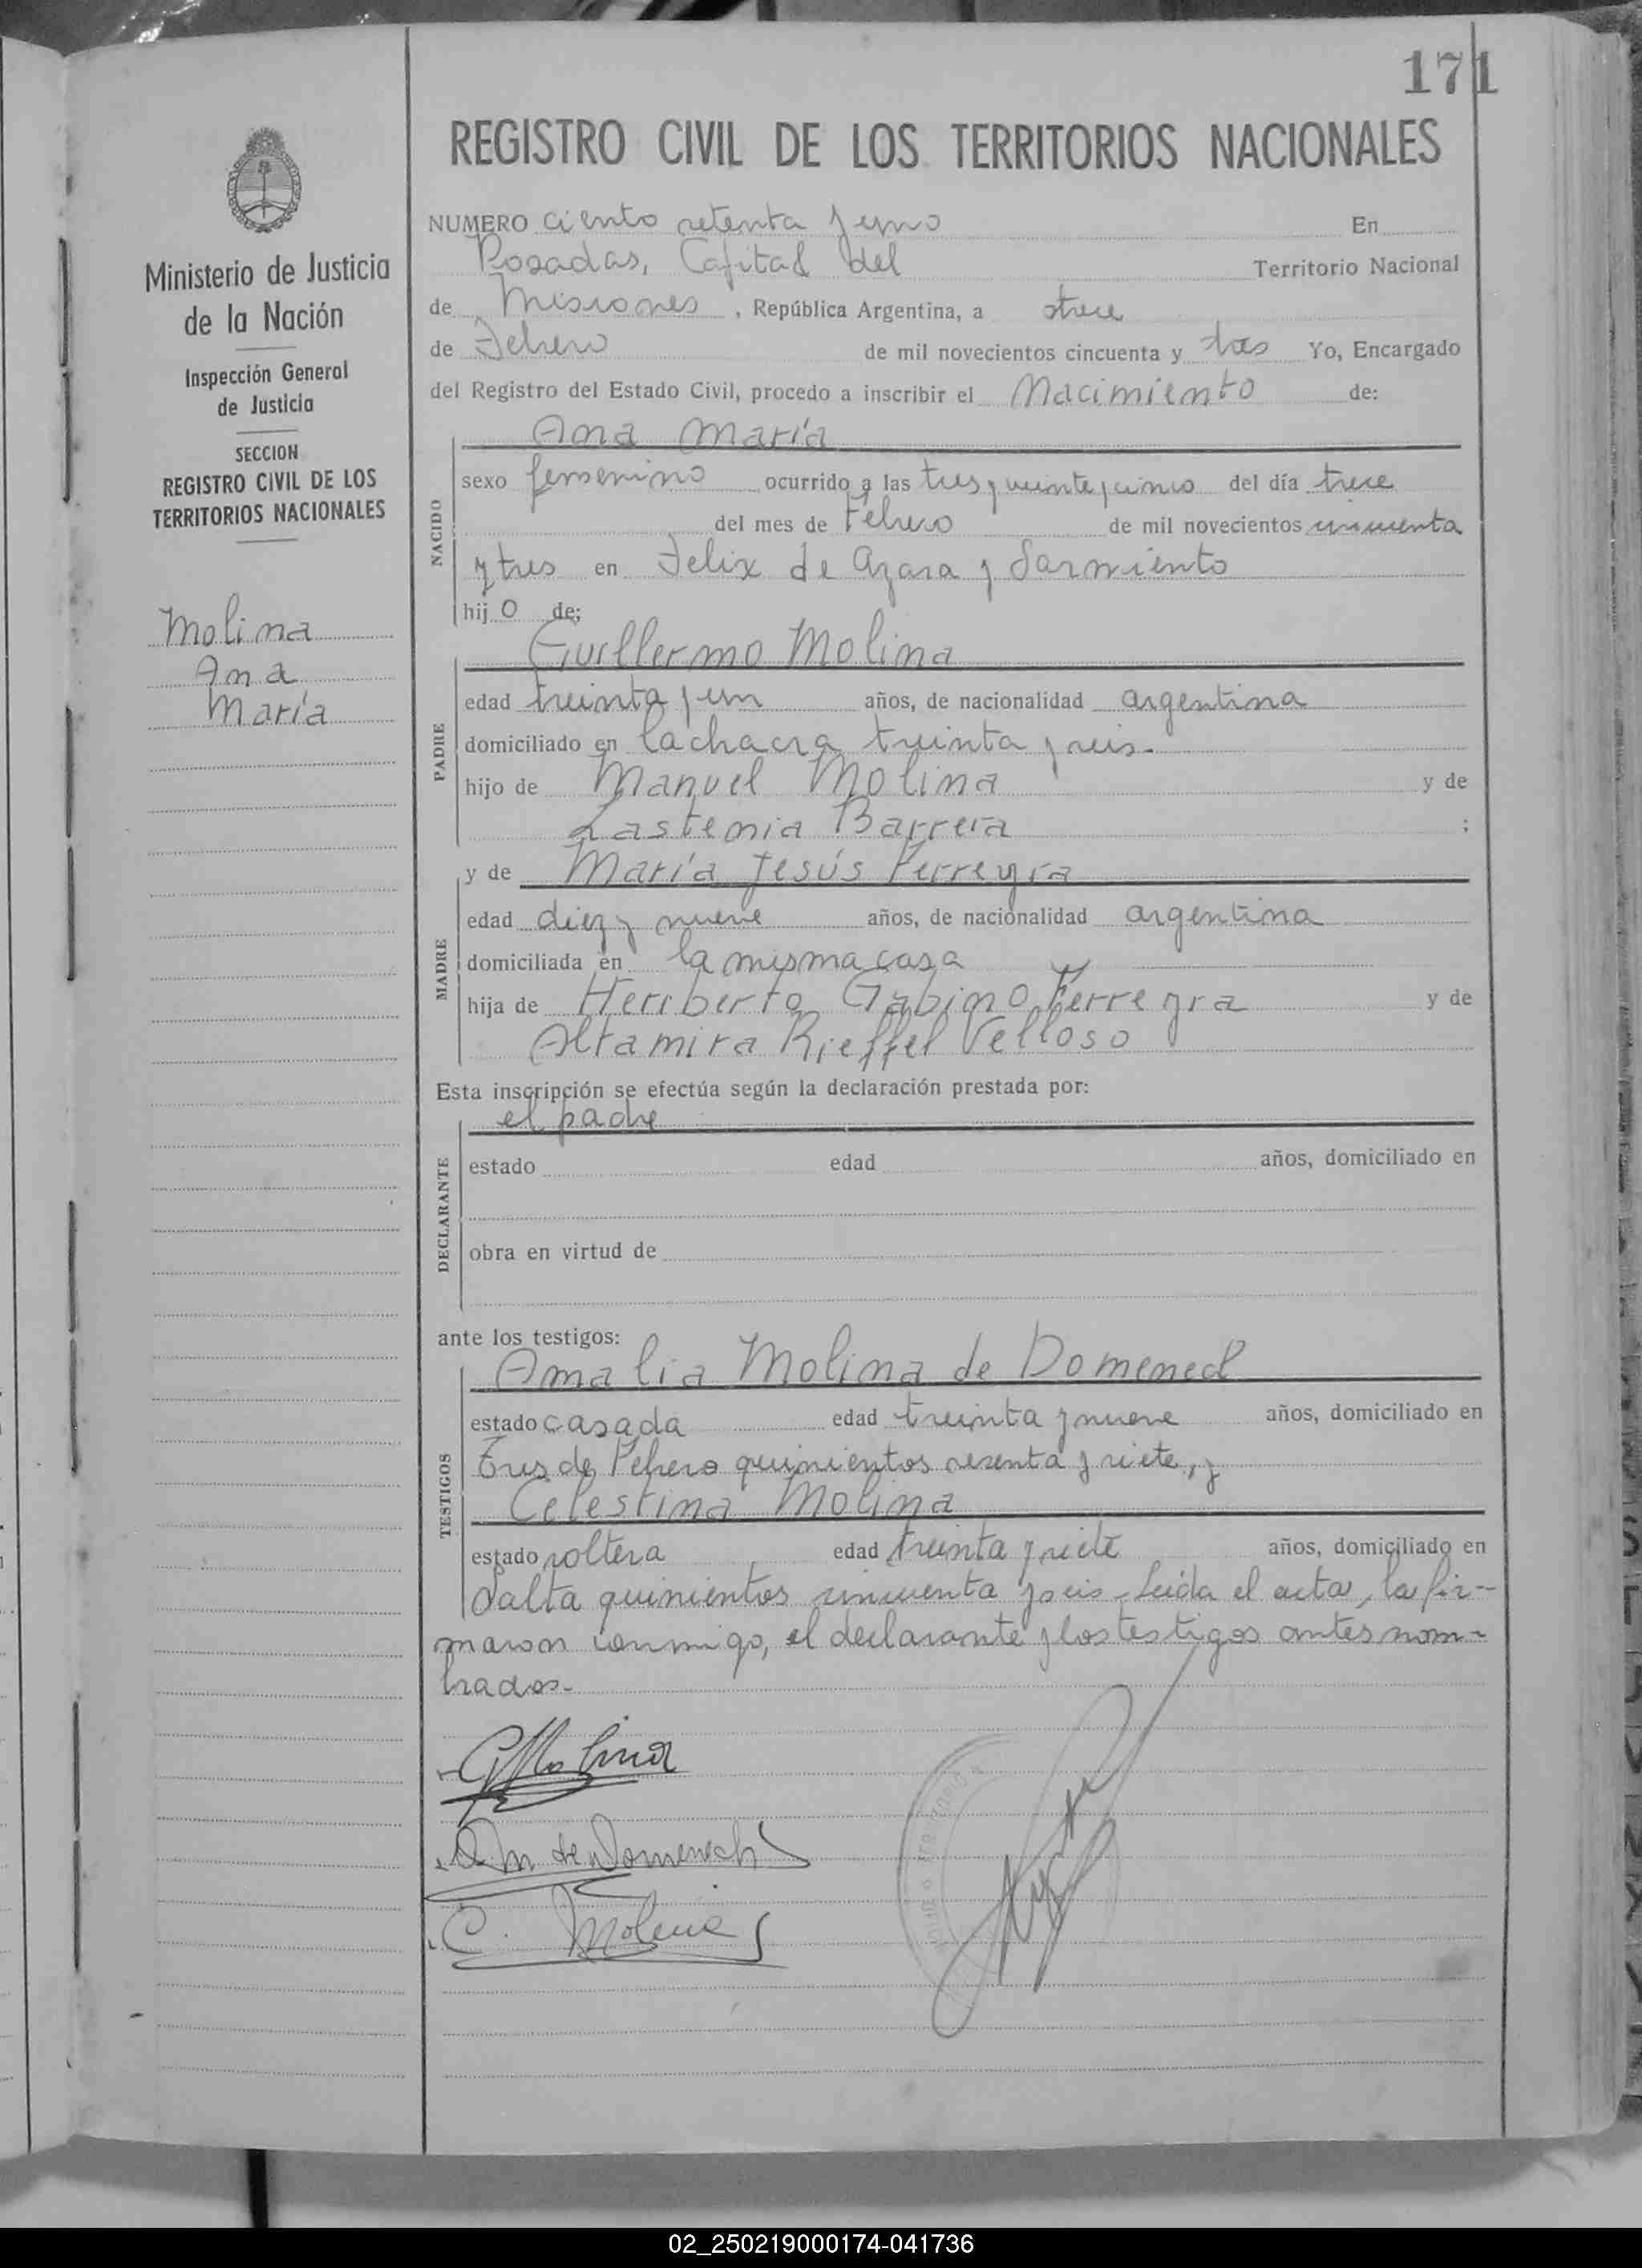 171
REGISTRO CIVIL DE LOS TERRITORIOS NACIONALES
Ministerio de Justicia
de la Nación
Inspección General
de Justicia
SECCION
REGISTRO CIVIL DE LOS
TERRITORIOS NACIONALES
Molina
Ana
María
NUMERO ciento setenta y uno En
Posadas, Capital del Territorio Nacional
de Misiones, República Argentina, a trece
de Febrero de mil novecientos cincuenta y tres Yo, Encargado
del Registro del Estado Civil, procedo a inscribir el Nacimiento de:
NACIDO
Ana María
sexo femenino ocurrido a las tres y veinte y cinco del día trece
del mes de Febrero de mil novecientos cincuenta
y tres en Felix de Azara y Sarmiento
hijo de;
PADRE
Guillermo Molina
edad treinta y un años, de nacionalidad argentina
domiciliado en la chacra treinta y seis.-
hijo de Manuel Molina y de
Lastenia Barrera ;
MADRE
y de María Jesús Ferreyra
edad diez y nueve años, de nacionalidad argentina
domiciliada en la misma casa
hija de Heriberto Gabino Ferreyra y de
Altamira Rieffel Velloso
Esta inscripción se efectúa según la declaración prestada por:
DECLARANTE
el padre
estado edad años, domiciliado en
obra en virtud de
ante los testigos:
TESTIGOS
Amalia Molina de Domenech
estado casada edad treinta y nueve años, domiciliado en
Tres de Febrero quinientos sesenta y siete, y
Celestina Molina
estado soltera edad treinta y siete años, domiciliado en
Salta quinientos cincuenta y seis - Leída el acta, la fir-
maron conmigo, el declarante y los testigos antes nom-
brados.-
G Molina
A M de Domenech
C. Molina
02_250219000174-041736